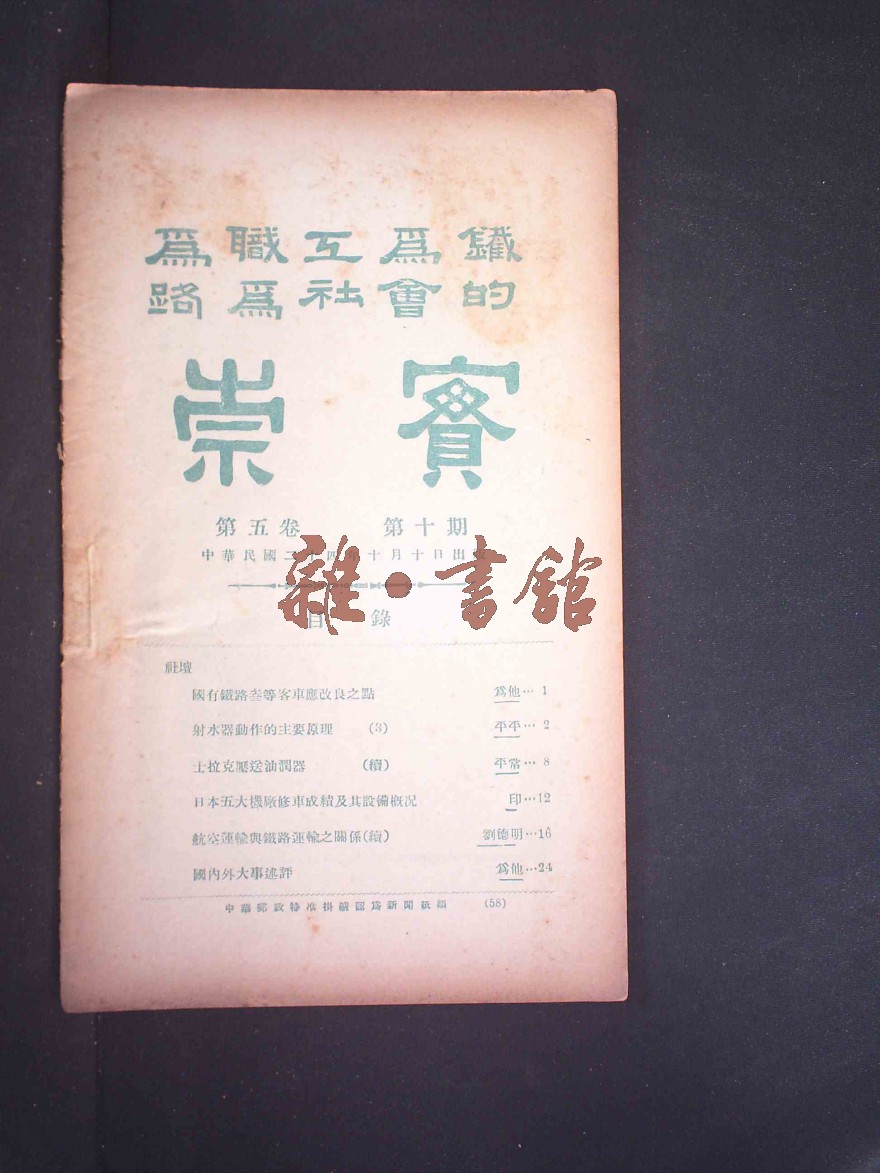 爲職工爲鐵
路爲社會的
崇實
第五卷 第十期
中華民國二十四年十月十日出版
雜·書館
目錄
社壇
國有鐵路叁等客車應改良之點 爲他…1
射水器動作的主要原理 (3) 平平…2
士拉克壓送油潤器 (續) 平常…8
日本五大機廠修車成績及其設備槪況 印…12
航空運輸與鐵路運輸之關係(續) 劉德明…16
國內外大事述評 爲他…24
中華郵政特准掛號認爲新聞紙類 (58)